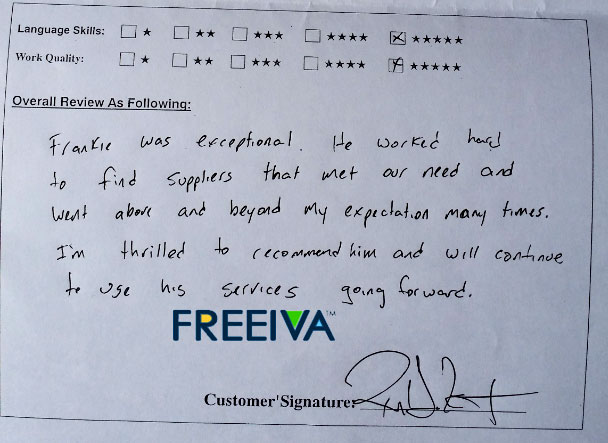 Language Skills: ☐ ★ ☐ ★★ ☐ ★★★ ☐ ★★★★ ☒ ★★★★★
Work Quality: ☐ ★ ☐ ★★ ☐ ★★★ ☐ ★★★★ ☒ ★★★★★
Overall Review As Following:
Frankie was exceptional. He worked hard
to find suppliers that met our need and
went above and beyond my expectation many times.
I'm thrilled to recommend him and will continue
to use his services going forward.
FREEIVA™
Customer'Signature: